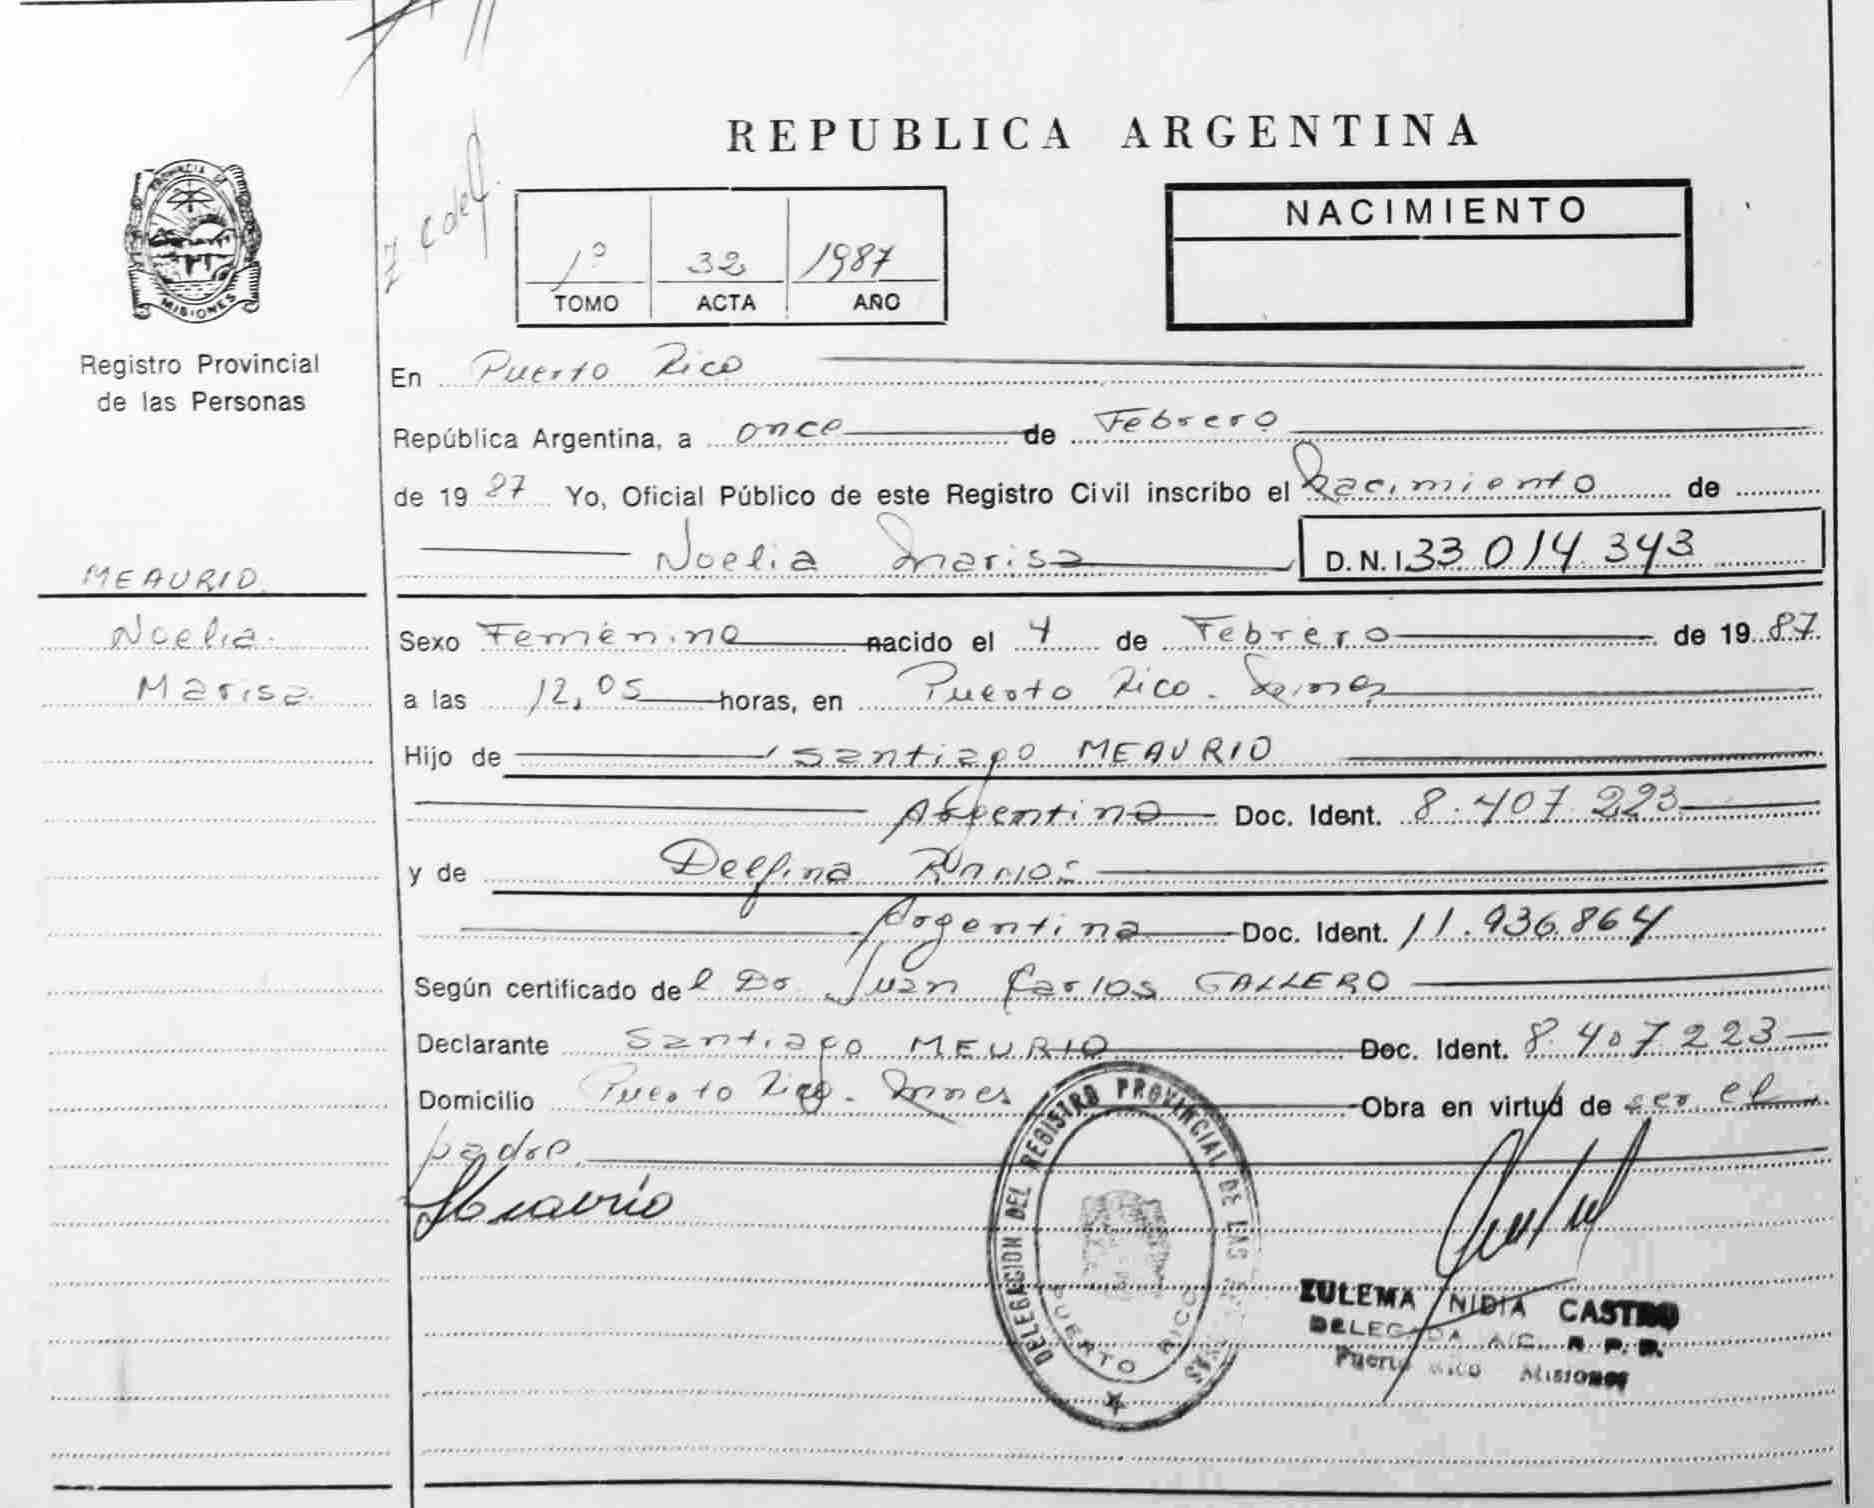 REPUBLICA ARGENTINA
PROVINCIA DE
MISIONES
Registro Provincial
de las Personas
1º 32 1987
TOMO ACTA AÑO
NACIMIENTO
En Puerto Rico
República Argentina, a once de Febrero
de 1987 Yo, Oficial Público de este Registro Civil inscribo el Nacimiento de
Noelia Marisa D.N.I. 33 014 343
MEAURIO
Noelia
Marisa
Sexo Femenino nacido el 4 de Febrero de 1987
a las 12,05 horas, en Puerto Rico - Mnes
Hijo de Santiago MEAURIO
Argentina Doc. Ident. 8.407.223
y de Delfina
Argentina Doc. Ident. 11.936.864
Según certificado del Dr. Juan Carlos GALLERO
Declarante Santiago MEURIO Doc. Ident. 8 407 223
Domicilio Puerto Rico - Mnes Obra en virtud de ser el
padre.
Meaurio
DELEGACION DEL REGISTRO PROVINCIAL DE LAS
PUERTO RICO
ZULEMA NIDIA CASTRO
DELEGADA A/C. R. P. P.
Puerto Rico Misiones